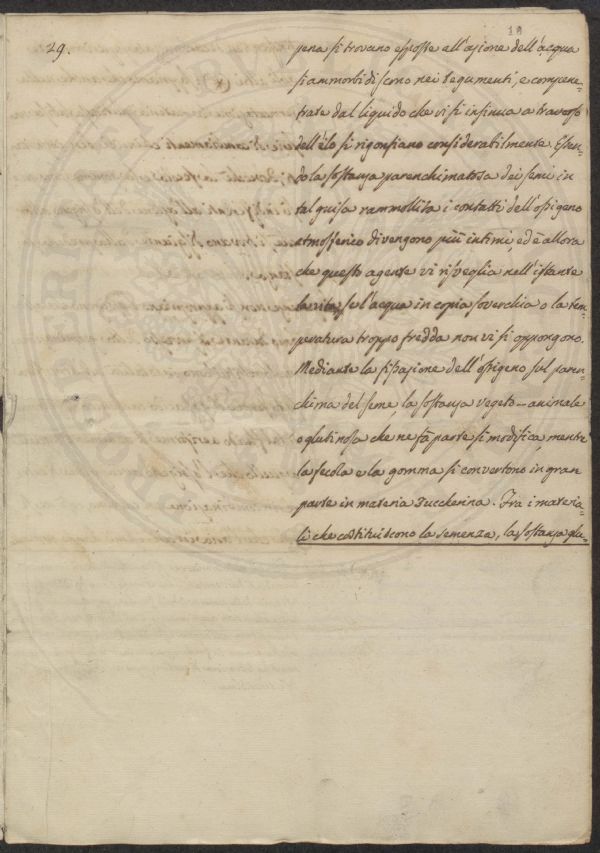 19
29.
pena si trovano esposte all'azione dell'acqua
si ammorbidiscono nei tegumenti, e compene-
trate dal liquido che vi si insinua a traverso
dell'élo si rigonfiano considerabilmente. Essen-
do la sostanza parenchimatosa dei semi in
tal guisa rammollita i contatti dell'ossigeno
atmosferico divengono più intimi, ed è allora
che questo agente vi risveglia nell'istante
la vita, se l'acqua in copia soverchia o la tem-
peratura troppo fredda non vi si oppongono.
Mediante la fissazione dell'ossigeno sul paren-
chima del seme, la sostanza vegeto-animale
o glutinosa che ne fà parte si modifica, mentre
la fecola e la gomma si convertono in gran
parte in materia zuccherina. Fra i materia-
li che costituiscono la semenza, la sostanza glu-